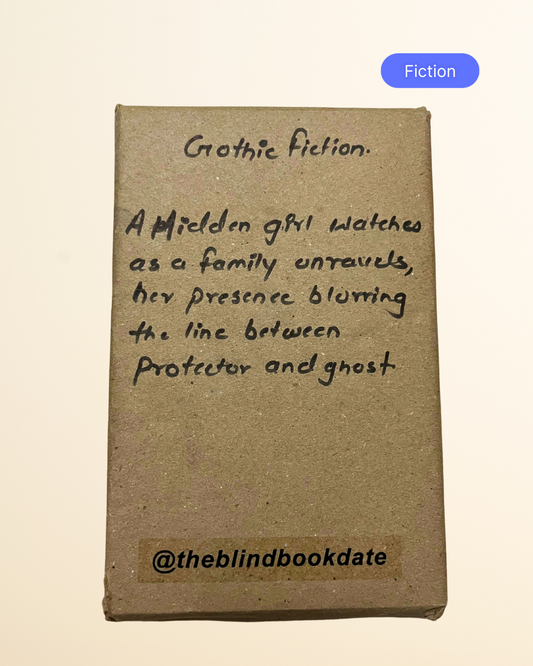 Fiction
Gothic Fiction.
A Hidden girl watches
as a family unravels,
her presence blurring
the line between
protector and ghost
@theblindbookdate